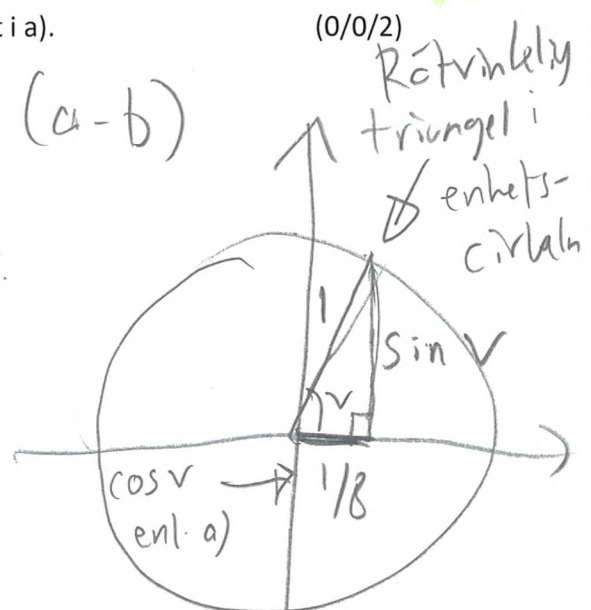 t i a).
(0/0/2)
(a-b)
Rätvinkelig
triangel i
enhets-
cirkeln
1
sin v
v
cos v
1/8
enl. a)